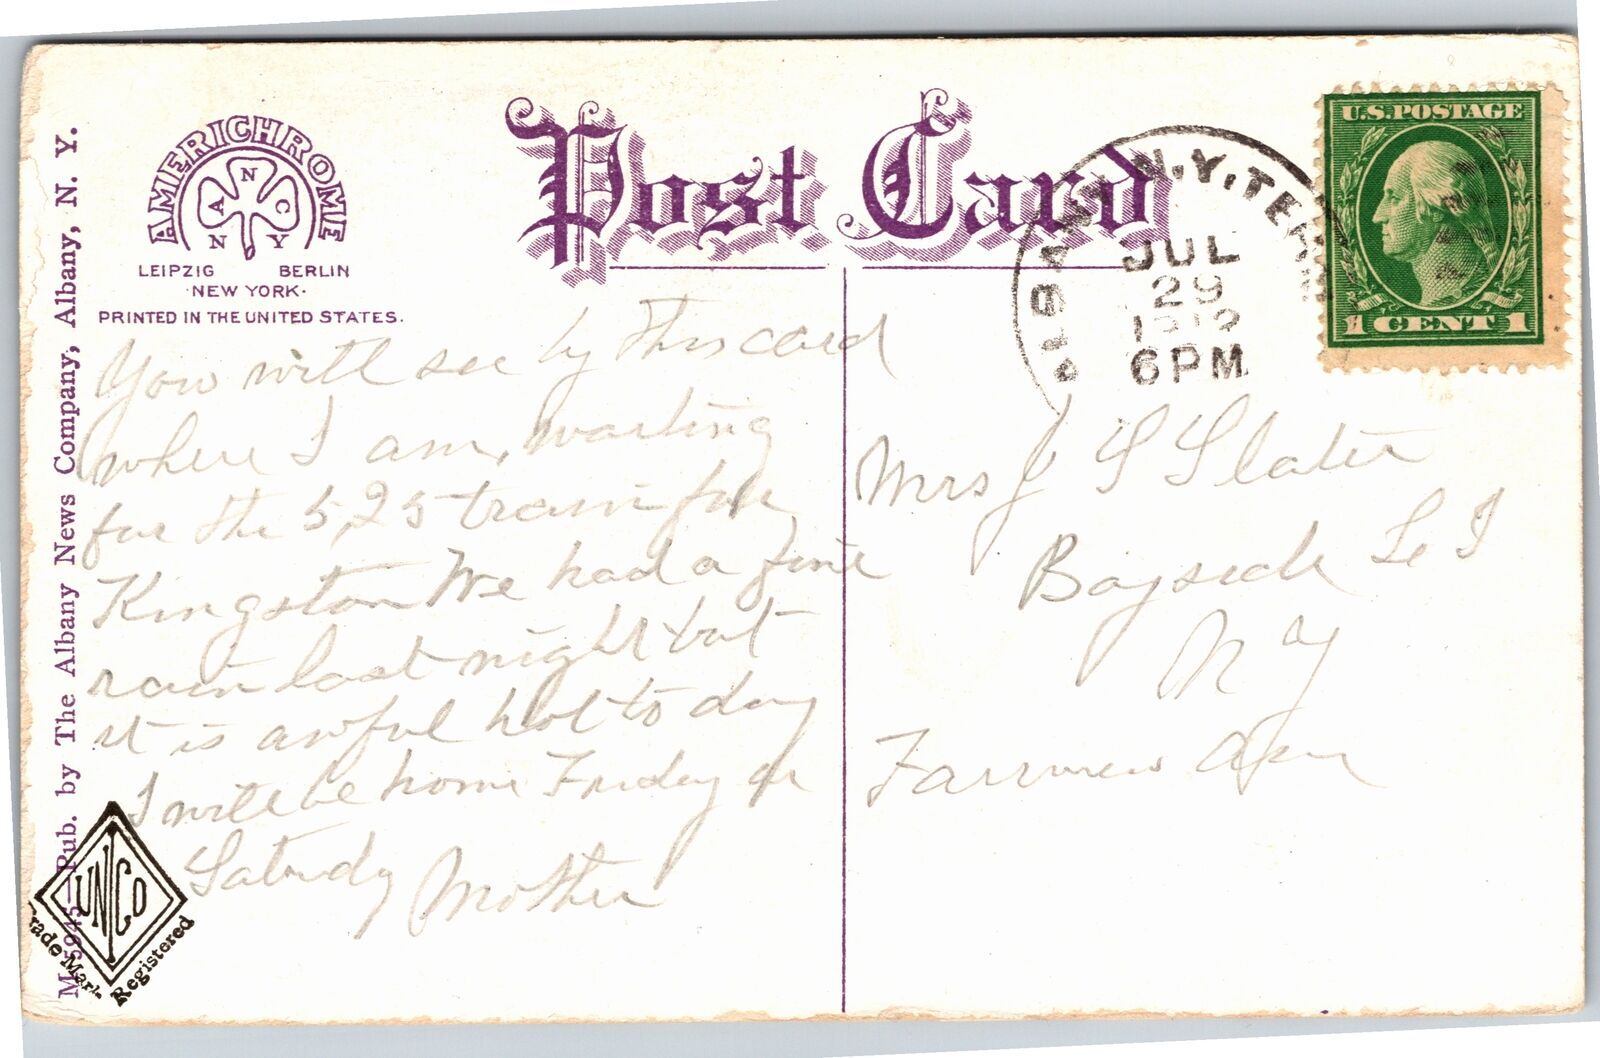 AMERICHROME
N
A C
N Y
LEIPZIG BERLIN
NEW YORK.
PRINTED IN THE UNITED STATES.
Post Card
ALBANY, N.Y. TERM
JUL
29
6 PM
U.S. POSTAGE
1 CENT 1
M 5945—Pub. by The Albany News Company, Albany, N. Y.
You will see by this card
where I am, waiting
for the 5,25 train for
Kingston We had a fine
rain last night but
it is awful hot to day
I will be home Friday or
Saturday Mother
Mrs J S Slater
Bayside L I
N Y
Fairview Ave
UNICO
Trade Mark Registered